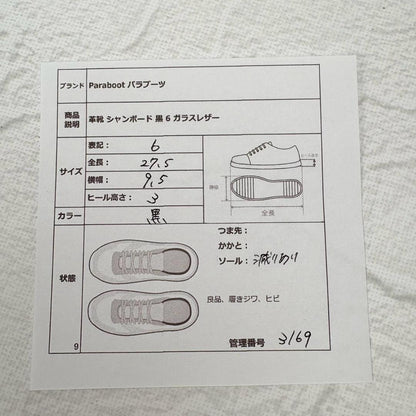 ブランド Paraboot パラブーツ
商品説明 革靴 シャンボード 黒 6 ガラスレザー
サイズ
表記： 6
全長： 27,5
横幅： 9,5
ヒール高さ： 3
ヒール高さ
横幅
全長
カラー 黒
状態
つま先：
かかと：
ソール： 減りあり
良品、履きジワ、ヒビ
9
管理番号 3169